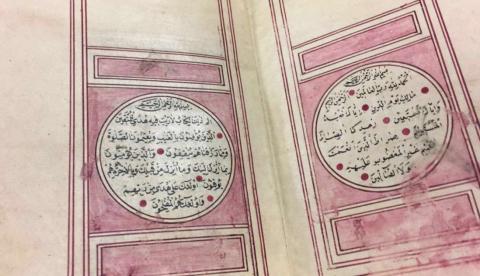 بسم الله الرحمن الرحيم
الحمد لله رب العالمين الرحمن الرحيم
مالك يوم الدين اياك نعبد
واياك نستعين اهدنا الصراط
المستقيم صراط الذين انعمت
عليهم غير المغضوب عليهم
ولا الضالين
بسم الله الرحمن الرحيم
الم ذلك الكتاب لا ريب فيه هدى للمتقين
الذين يؤمنون بالغيب ويقيمون الصلوة
ومما رزقناهم ينفقون والذين يؤمنون
بما انزل اليك وما انزل من قبلك وبالاخرة هم
يوقنون اولئك على هدى من ربهم
واولئك هم المفلحون